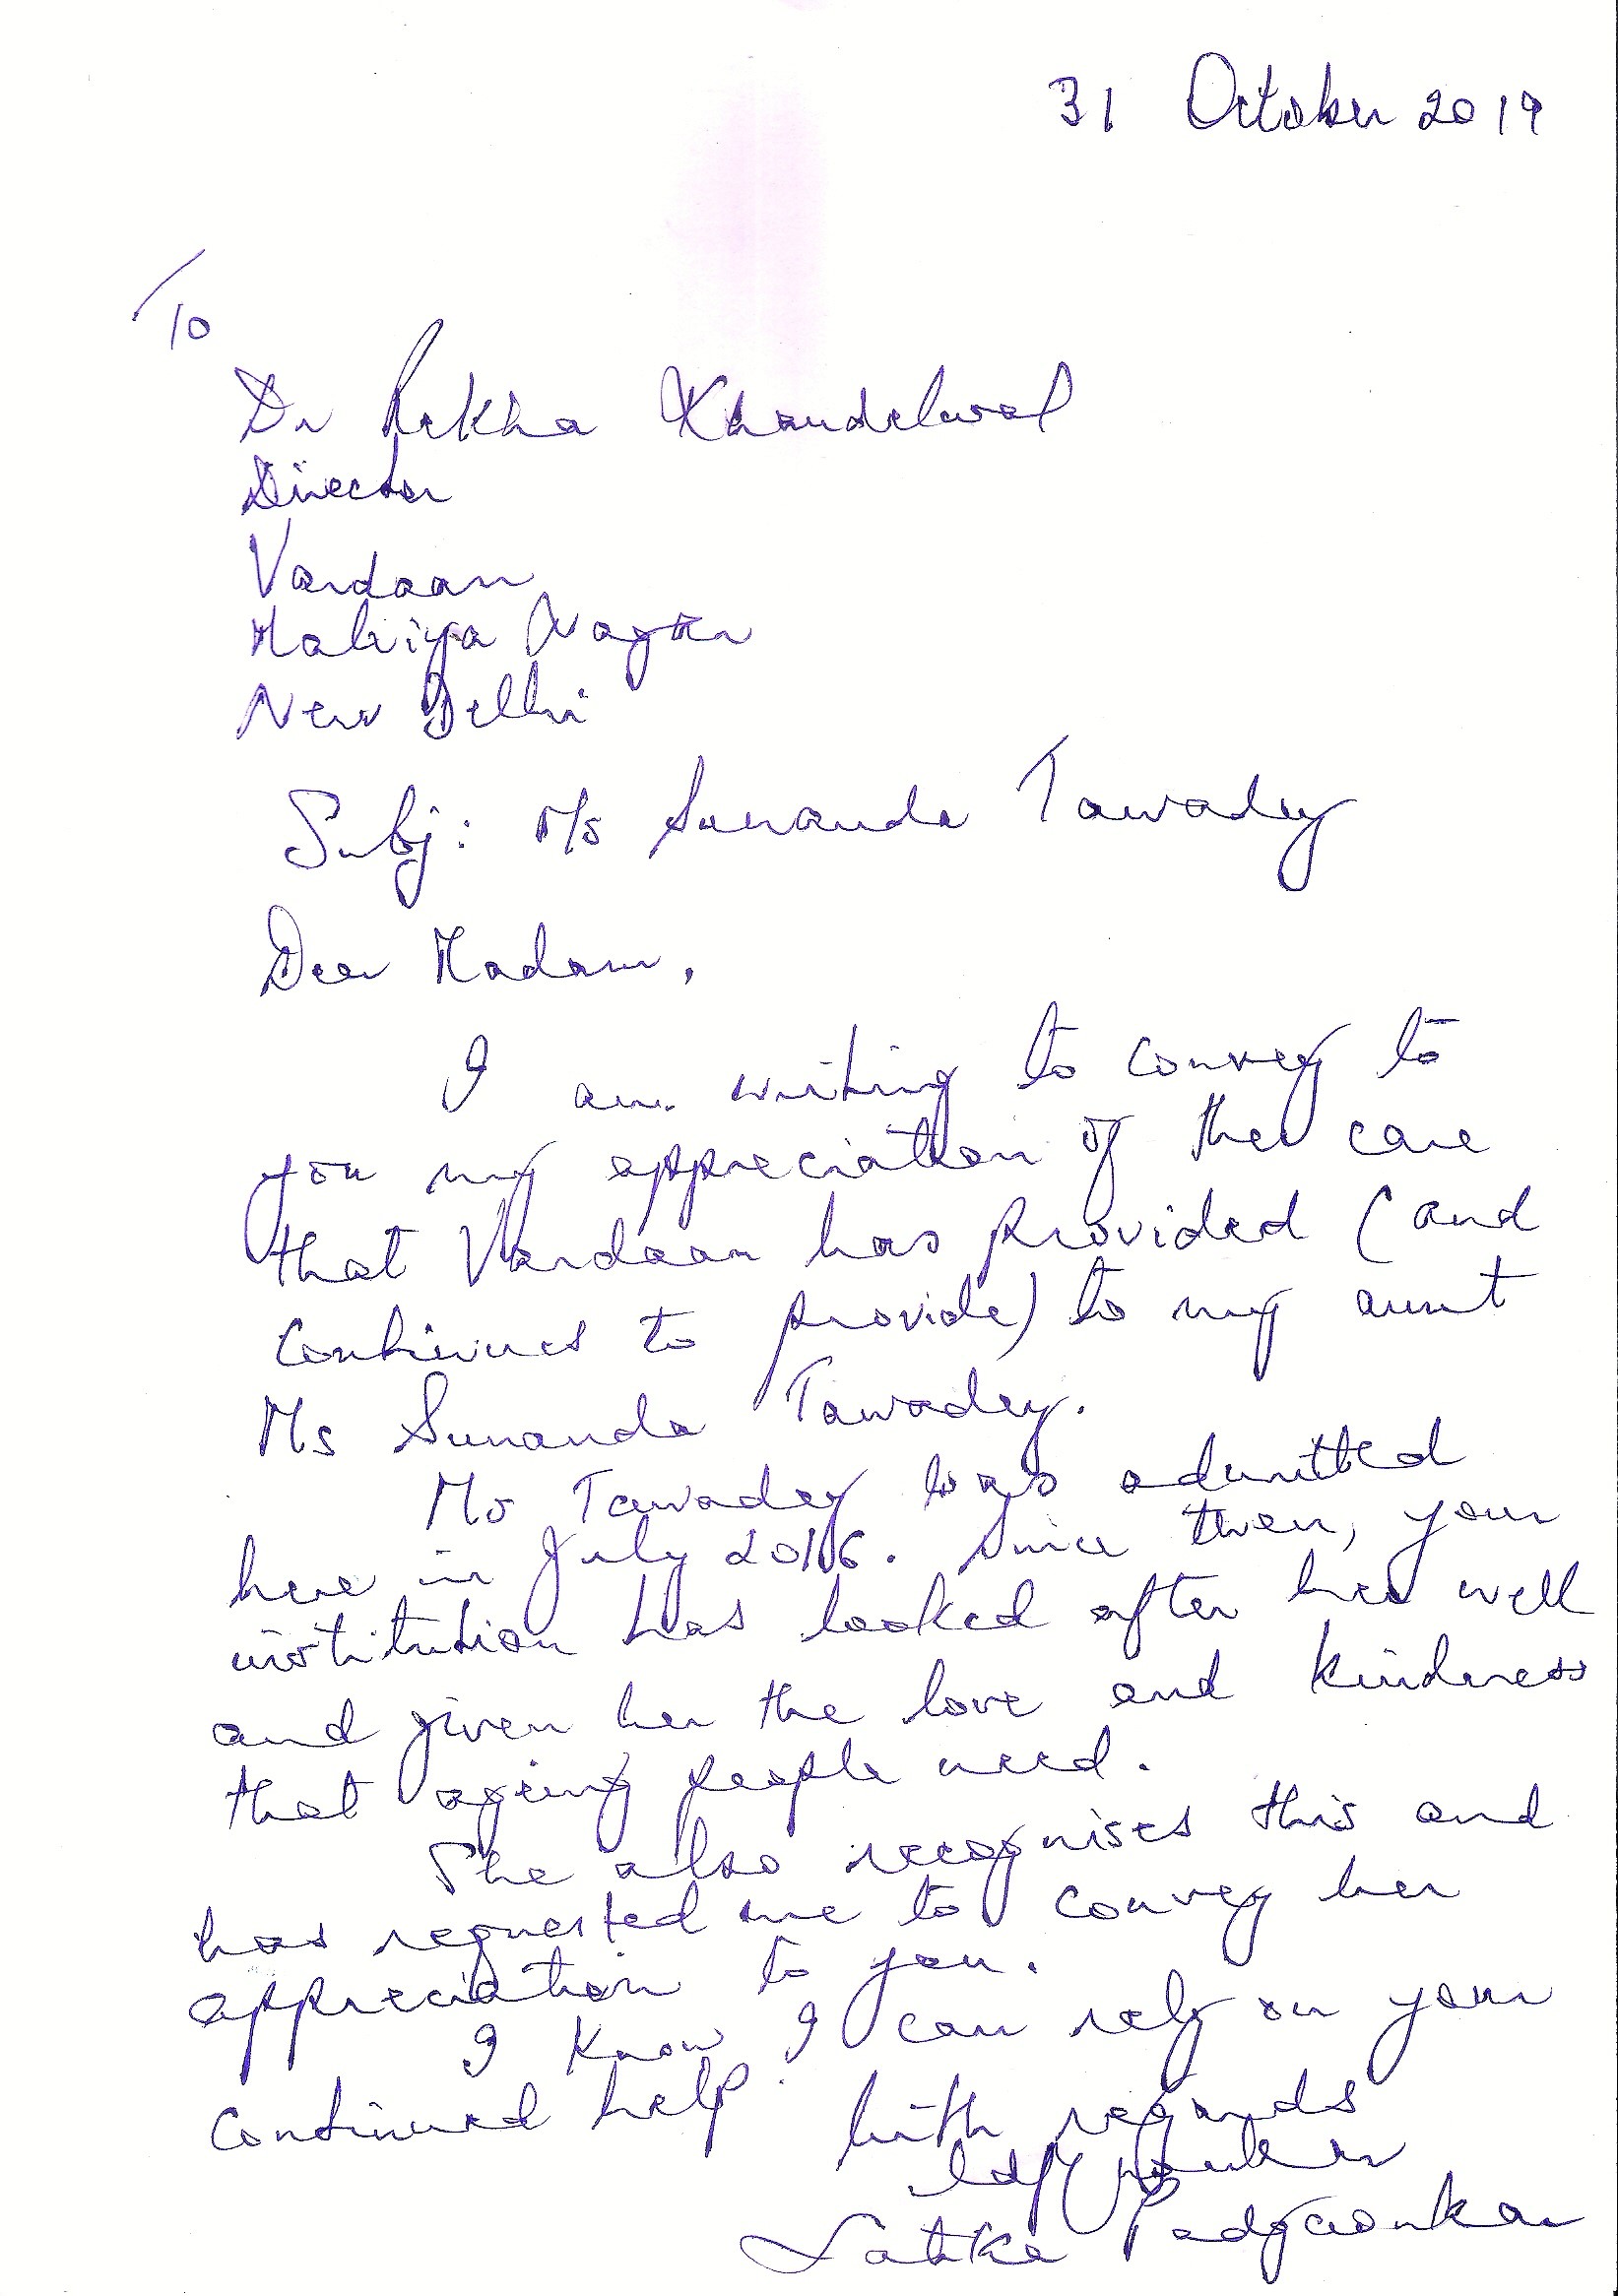 31 October 2019
To
Dr Rekha Khandelwal
Director
Vardaan
Malviya Nagar
New Delhi
Subj: Ms Sunanda Tawadey
Dear Madam,
I am writing to convey to
you my appreciation of the care
that Vardaan has provided (and
continues to provide) to my aunt
Ms Sunanda Tawadey.
Ms Tawadey was admitted
here in July 2016. Since then, your
institution has looked after her well
and given her the love and kindness
that ageing people need.
She also recognises this and
has requested me to convey her
appreciation to you.
I know I can rely on your
continued help.
With regards
Latika Padgaonkar